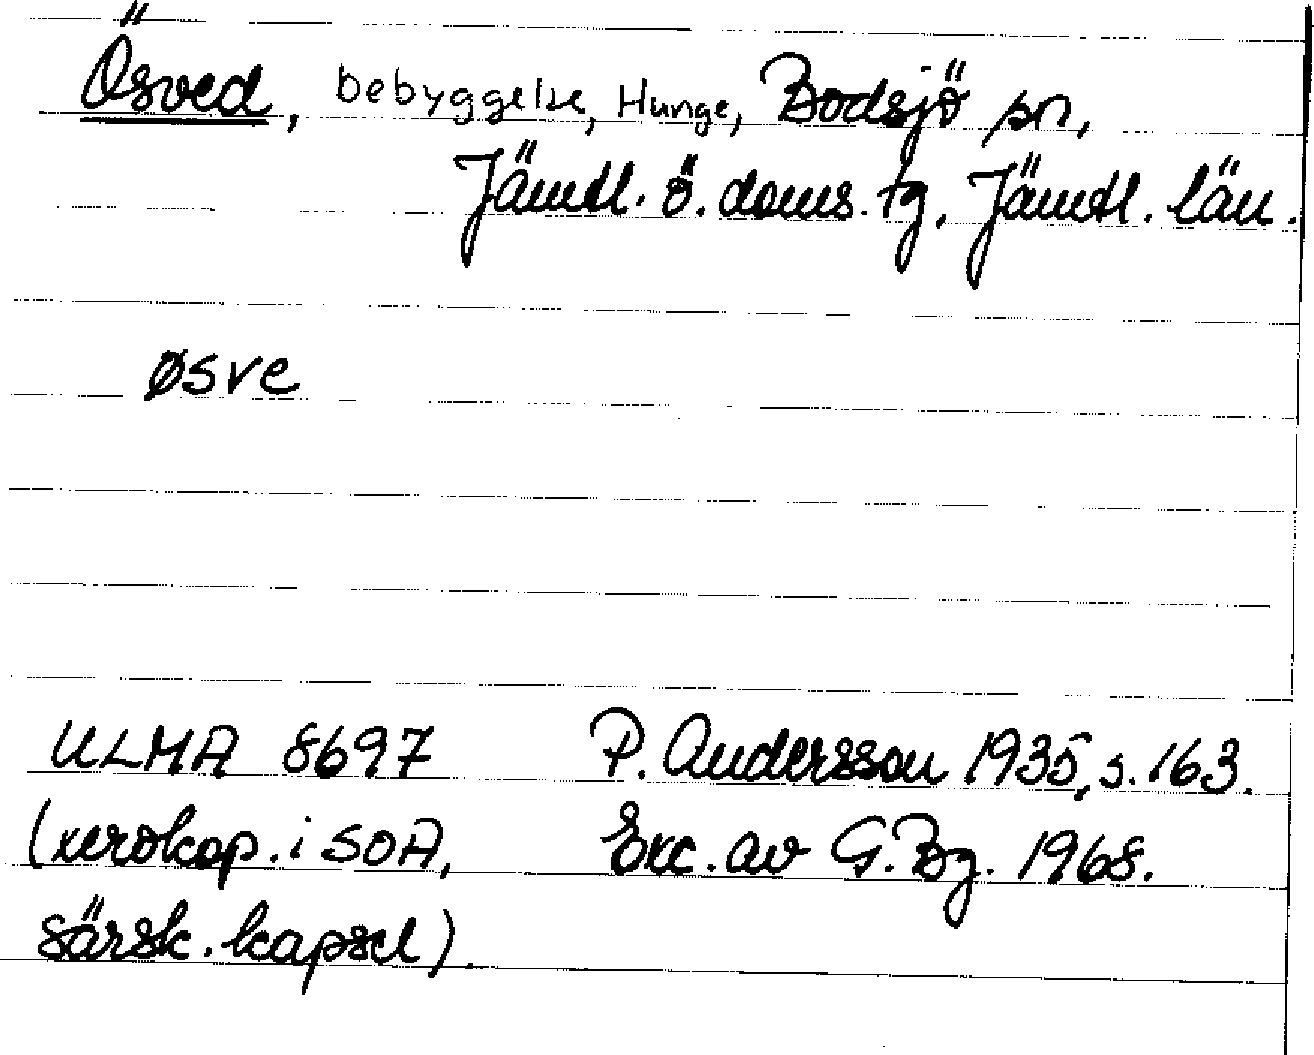 Ösved, bebyggelse, Hunge, Bodsjö sn,
Jämtl. ö. doms. tg, Jämtl. län.
øsve
ULMA 8697 P. Andersson 1935, s. 163.
(xerokop. i SOA, Exc. av G. Bg. 1968.
särsk. kapsel)